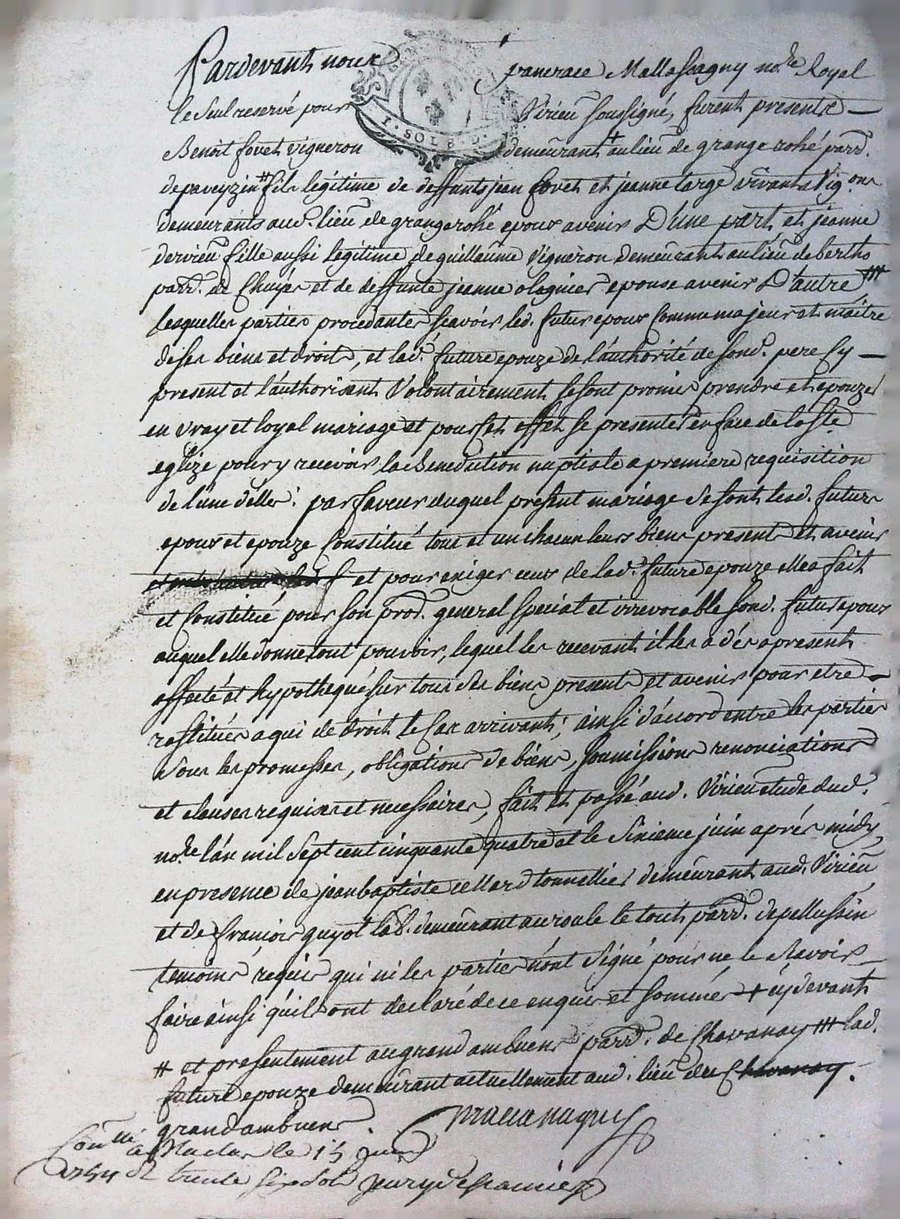 Pardevant nous pancrace Mallassagny no.re Royal
le seul reservé pour Virieu soussigné, furent presents
I. SOL 8. D.
Benoit fovet vigneron demeurant + au lieu de grange rohé parr.
de paveyzin # fils legitime de deffunts jean fovet et jeanne large vivants vig.ons
demeurants aud. lieu de grange rohé epoux avenir D'une part et jeanne
dervieu fille aussi legitime de guillaume vigneron demeurant au lieu de berths
parr. de Chuyer et de deffunte jeanne olagnier epouse avenir D'autre ###
lesquelles parties procedantes scavoir led. futur epoux Comme majeur et maitre
de ses biens et droits, et lad. future epouze de l'authorité de sond. pere Cy
present et l'authorisent Volontairement se sont promis prendre et epouzer
en vray et loyal mariage et pour cet effet se presenter en face de la Ste
eglize pour y recevoir la benediction nuptiale a premiere requisition
de l'une d'elles: par faveur auquel present mariage se sont lesd. futurs
epoux et epouze Constitué tous et un chacun leurs biens presents et avenir
et pour exiger ceux de lad. future epouze elle a fait
et Constitué pour son prod. general special et irrevocable sond. futur epoux
auquel elle donne tout pouvoir, lequel les recevant il les a dés apresent
affecté et hypothequé sur tous ses biens presents et avenir pour etre
restitués a qui de droit le Cas arrivant; ainsi d'accord entre les parties
sous les promesses, obligations de biens, soumissions renonciations
et clauses requises et necessaires, fait et passé aud. Virieu etude dud.
no.re l'an mil sept cent cinquante quatre et le sixieme juin aprés midy,
en presence de jean baptiste cellard tonnellier demeurant aud. Virieu
et de francois guyot lab. demeurant au roule le tout parr. de pellussin
temoins requis qui ni les parties n'ont signé pour ne le scavoir
faire ainsi qu'ils ont declaré de ce enquis et sommés + cy devant
# et presentement au grand ambuens parr. de Chavanay ### lad.
future epouze demeurant actuellement aud. lieu du Chavanay.
grand ambuens.
Mallassagny
Con.lé a Maclas le 15 juin
1754 R trente six sols